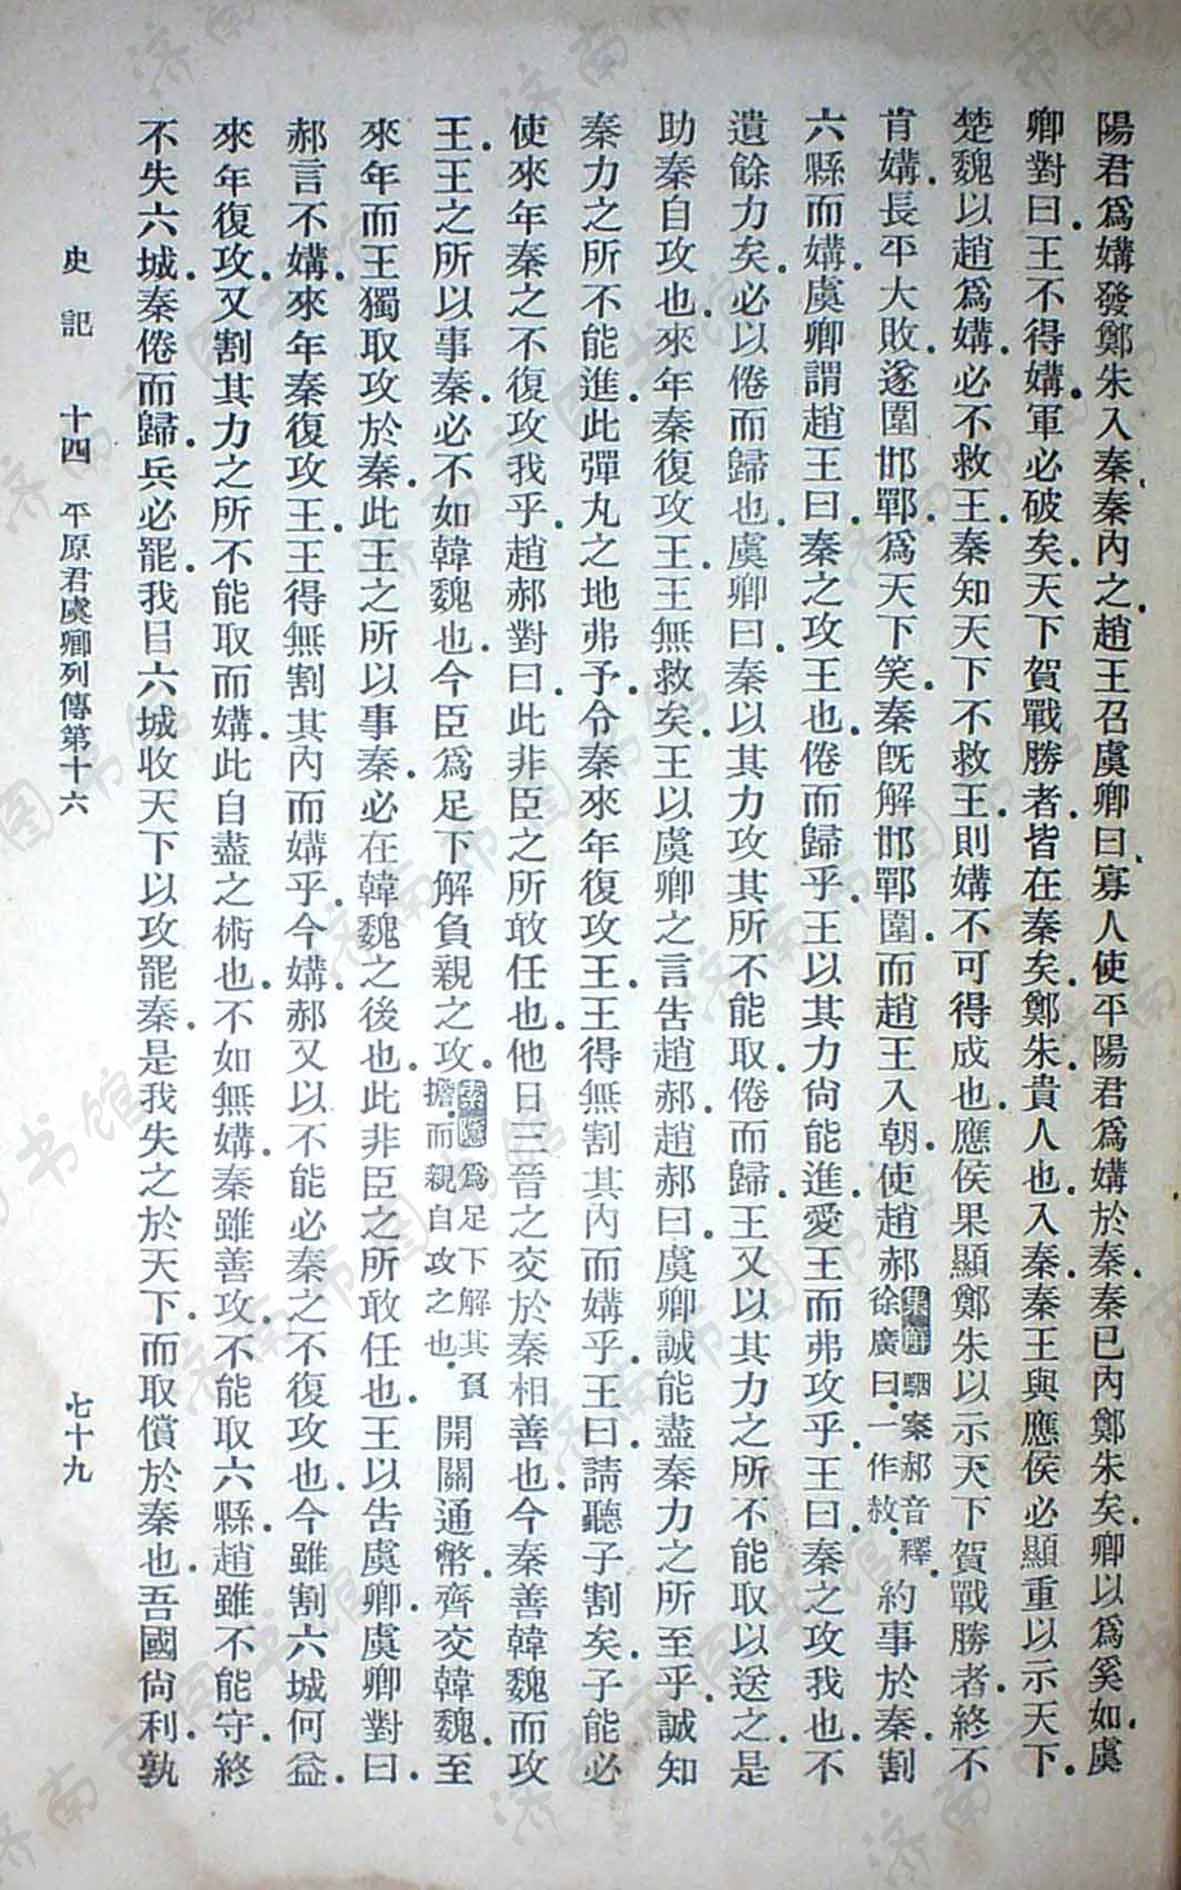 陽君爲媾發鄭朱入秦秦內之趙王召虞卿曰寡人使平陽君爲媾於秦秦已內鄭朱矣卿以爲奚如虞
卿對曰王不得媾軍必破矣天下賀戰勝者皆在秦矣鄭朱貴人也入秦秦王與應侯必顯重以示天下
楚魏以趙爲媾必不救王秦知天下不救王則媾不可得成也應侯果顯鄭朱以示天下賀戰勝者終不
肯媾長平大敗遂圍邯鄲爲天下笑秦旣解邯鄲圍而趙王入朝使趙郝集解駰案郝音釋徐廣曰一作赦約事於秦割
六縣而媾虞卿謂趙王曰秦之攻王也倦而歸乎王以其力尙能進愛王而弗攻乎王曰秦之攻我也不
遺餘力矣必以倦而歸也虞卿曰秦以其力攻其所不能取倦而歸王又以其力之所不能取以送之是
助秦自攻也來年秦復攻王王無救矣王以虞卿之言告趙郝趙郝曰虞卿誠能盡秦力之所至乎誠知
秦力之所不能進此彈丸之地弗予令秦來年復攻王王得無割其內而媾乎王曰請聽子割矣子能必
使來年秦之不復攻我乎趙郝對曰此非臣之所敢任也他日三晉之交於秦相善也今秦善韓魏而攻
王王之所以事秦必不如韓魏也今臣爲足下解負親之攻索隱爲足下解其負擔而親自攻之也開關通幣齊交韓魏至
來年而王獨取攻於秦此王之所以事秦必在韓魏之後也此非臣之所敢任也王以告虞卿虞卿對曰
郝言不媾來年秦復攻王王得無割其內而媾乎今媾郝又以不能必秦之不復攻也今雖割六城何益
來年復攻又割其力之所不能取而媾此自盡之術也不如無媾秦雖善攻不能取六縣趙雖不能守終
不失六城秦倦而歸兵必罷我目六城收天下以攻罷秦是我失之於天下而取償於秦也吾國尙利孰
史記 十四 平原君虞卿列傳第十六 七十九